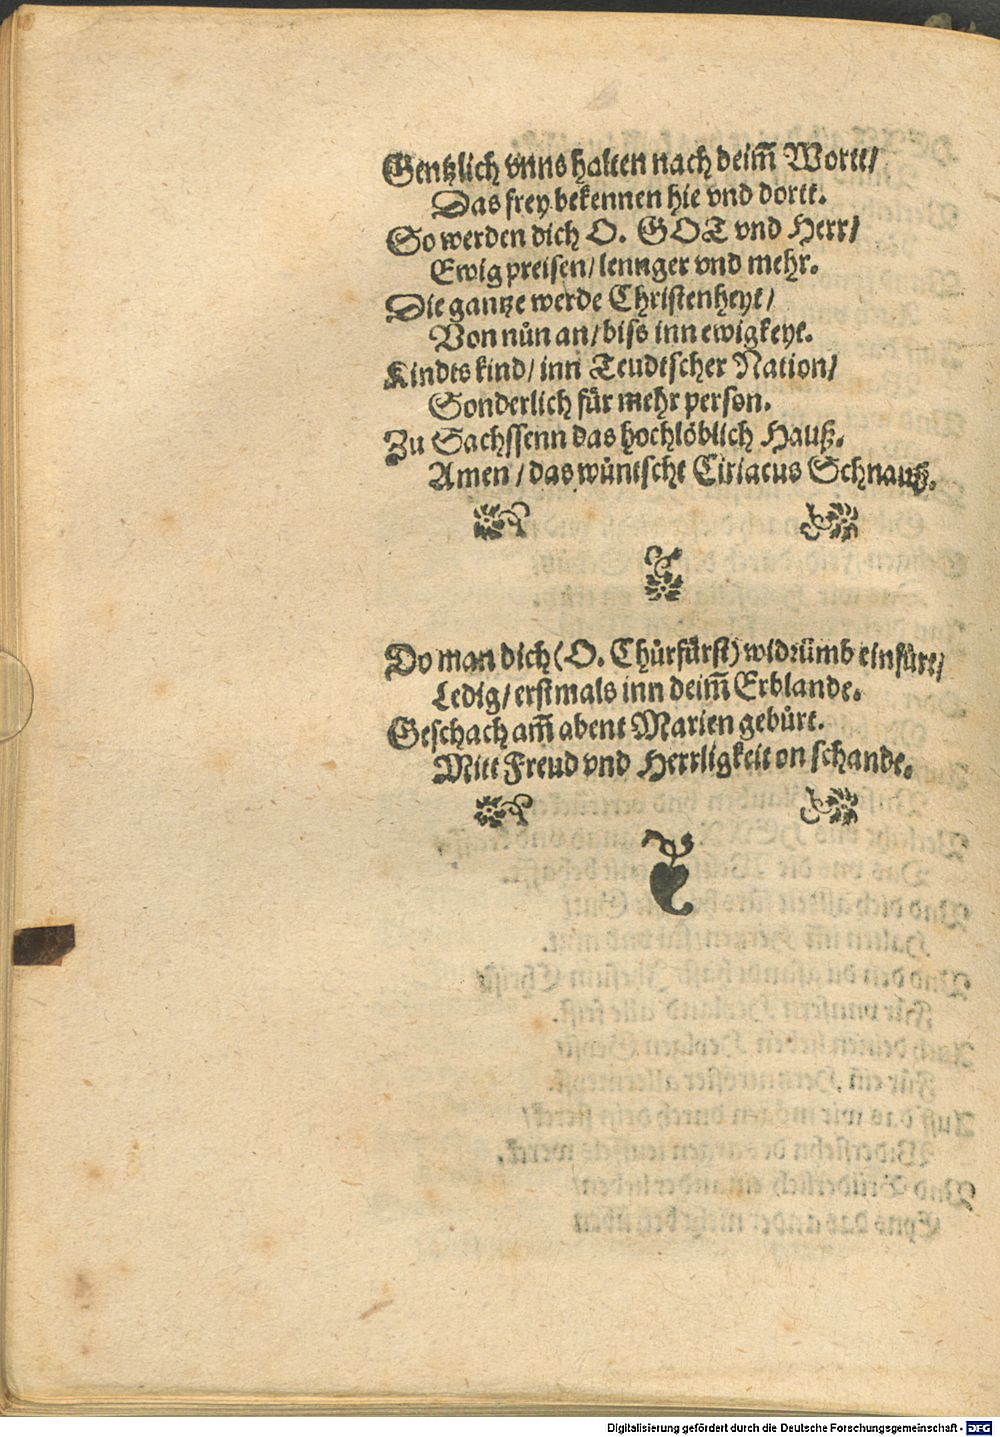 Gentzlich vnns halten nach deim̅ Wortt/
Das frey bekennen hie vnd dortt.
So werden dich O. GOT vnd Herr/
Ewig preisen/ lennger vnd mehr.
Die gantze werde Christenheyt/
Von nůn an/ biss inn ewigkeyt.
Kindts kind/ inn Teudtscher Nation/
Sonderlich für mehr person.
Zu Sachssenn das hochlöblich Hauß.
Amen/ das wüntscht Ciriacus Schnauß.
Do man dich (O. Chürfürst) widrümb einfürt/
Ledig/ erstmals inn deim̅ Erblande.
Geschach am̅ abent Marien gebürt.
Mitt Freud vnd Herrligkeit on schande.
Digitalisierung gefördert durch die Deutsche Forschungsgemeinschaft - DFG